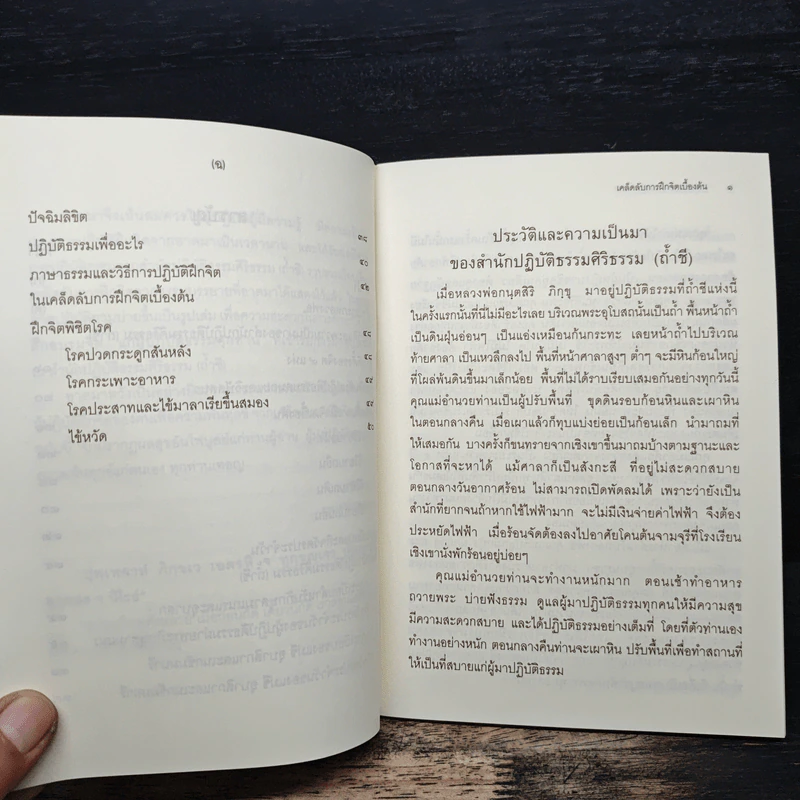 (ฉ)
ปัจฉิมลิขิต ๓๘
ปฏิบัติธรรมเพื่ออะไร ๔๐
ภาษาธรรมและวิธีการปฏิบัติฝึกจิต ๔๒
ในเคล็ดลับการฝึกจิตเบื้องต้น
ฝึกจิตพิชิตโรค ๔๘
โรคปวดกระดูกสันหลัง ๔๘
โรคกระเพาะอาหาร ๔๙
โรคประสาทและไข้มาลาเรียขึ้นสมอง ๔๙
ไข้หวัด ๕๐
เคล็ดลับการฝึกจิตเบื้องต้น ๑
ประวัติและความเป็นมา
ของสำนักปฏิบัติธรรมศิริธรรม (ถ้ำชี)
เมื่อหลวงพ่อกนฺตสิริ ภิกฺขุ มาอยู่ปฏิบัติธรรมที่ถ้ำชีแห่งนี้
ในครั้งแรกนั้นที่นี่ไม่มีอะไรเลย บริเวณพระอุโบสถนั้นเป็นถ้ำ พื้นหน้าถ้ำ
เป็นดินฝุ่นอ่อนๆ เป็นแอ่งเหมือนก้นกระทะ เลยหน้าถ้ำไปบริเวณ
ท้ายศาลา เป็นเหวลึกลงไป พื้นที่หน้าศาลาสูงๆ ต่ำๆ จะมีหินก้อนใหญ่
ที่โผล่พ้นดินขึ้นมาเล็กน้อย พื้นที่ไม่ได้ราบเรียบเสมอกันอย่างทุกวันนี้
คุณแม่อำนวยท่านเป็นผู้ปรับพื้นที่ ขุดดินรอบก้อนหินและเผาหิน
ในตอนกลางคืน เมื่อเผาแล้วก็ทุบแบ่งย่อยเป็นก้อนเล็ก นำมาถมที่
ให้เสมอกัน บางครั้งก็ขนทรายจากเชิงเขาขึ้นมาถมบ้างตามฐานะและ
โอกาสที่จะหาได้ แม้ศาลาก็เป็นสังกะสี ที่อยู่ไม่สะดวกสบาย
ตอนกลางวันอากาศร้อน ไม่สามารถเปิดพัดลมได้ เพราะว่ายังเป็น
สำนักที่ยากจนถ้าหากใช้ไฟฟ้ามาก จะไม่มีเงินจ่ายค่าไฟฟ้า จึงต้อง
ประหยัดไฟฟ้า เมื่อร้อนจัดต้องลงไปอาศัยโคนต้นจามจุรีที่โรงเรียน
เชิงเขานั่งพักร้อนอยู่บ่อยๆ
คุณแม่อำนวยท่านจะทำงานหนักมาก ตอนเช้าทำอาหาร
ถวายพระ บ่ายฟังธรรม ดูแลผู้มาปฏิบัติธรรมทุกคนให้มีความสุข
มีความสะดวกสบาย และได้ปฏิบัติธรรมอย่างเต็มที่ โดยที่ตัวท่านเอง
ทำงานอย่างหนัก ตอนกลางคืนท่านจะเผาหิน ปรับพื้นที่เพื่อทำสถานที่
ให้เป็นที่สบายแก่ผู้มาปฏิบัติธรรม